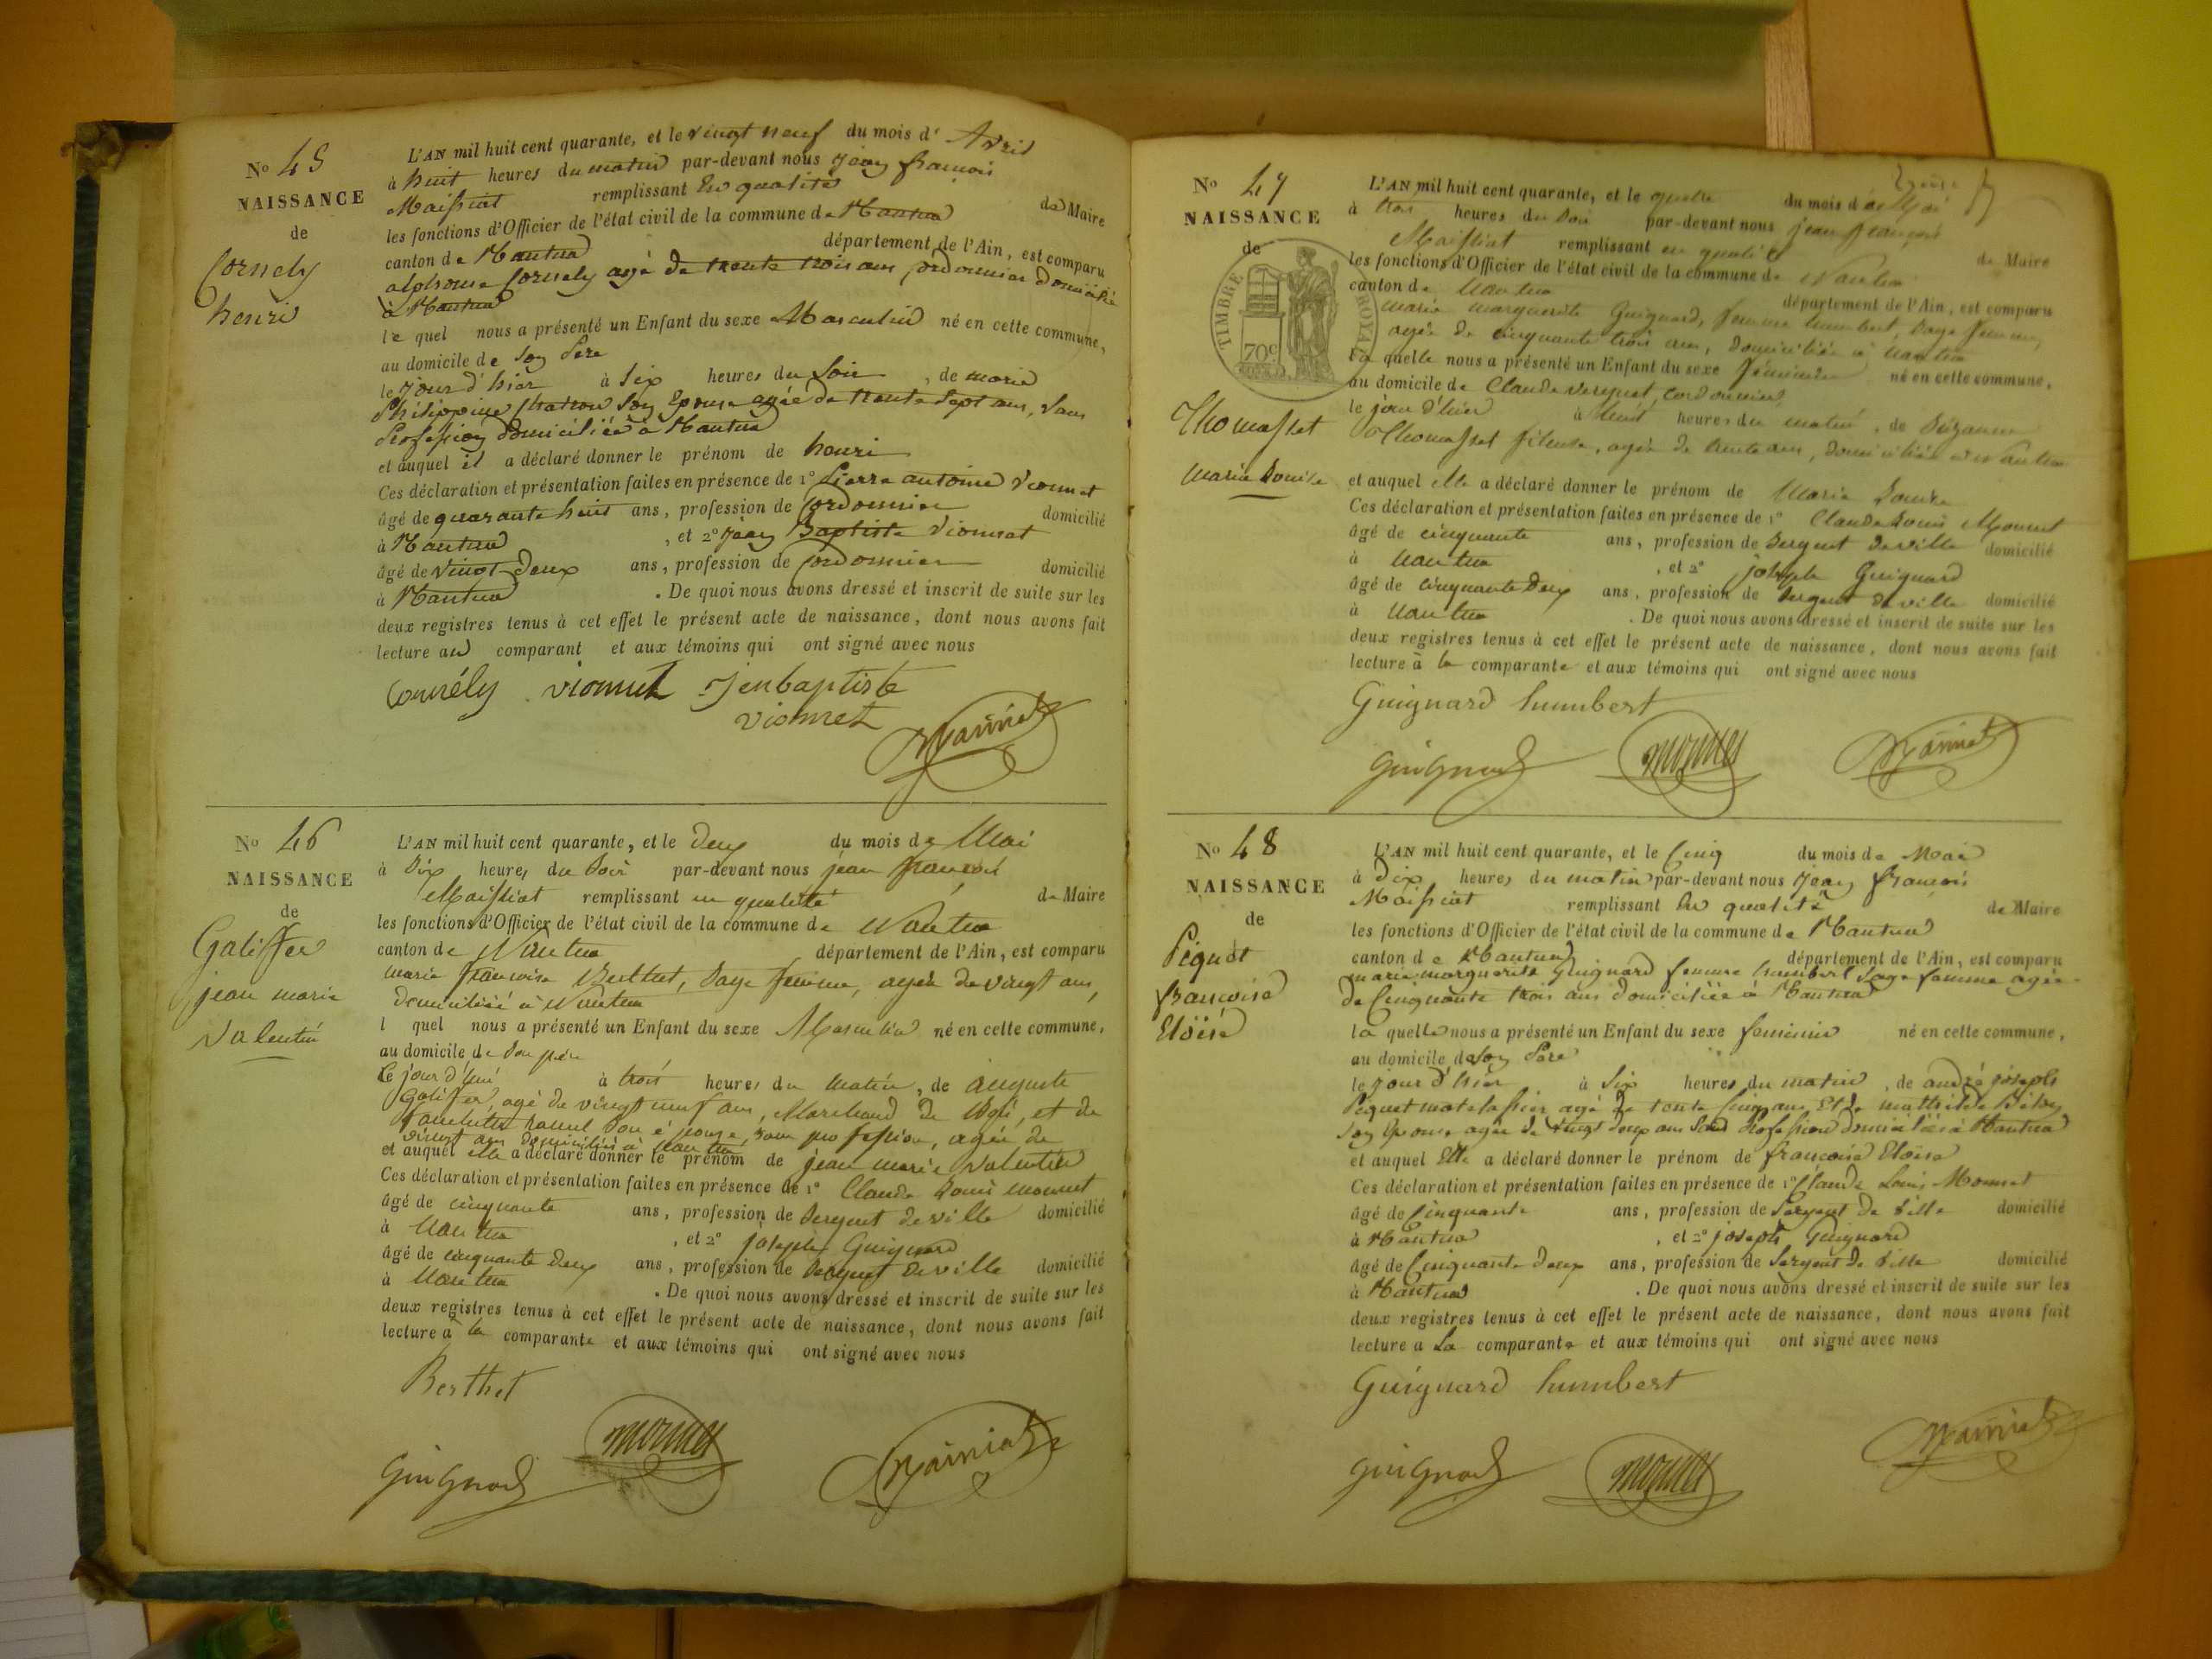 No 45
NAISSANCE
de
Cornely
henri
L'AN mil huit cent quarante, et le vingt neuf du mois d' Avril
à huit heures du matin par-devant nous jean francois
Maissiat remplissant en qualité de Maire
les fonctions d'Officier de l'état civil de la commune de Nantua
canton de Nantua département de l'Ain, est comparu
alphonse Cornely agé de trente trois ans, Cordonnier domicilié
à Nantua
le quel nous a présenté un Enfant du sexe Masculin né en cette commune,
au domicile de son Père
le jour d'hier à Six heures du Soir, de marie
Philippine son Epouse agée de trente sept ans, sans
Profession domiciliée à Nantua
et auquel il a déclaré donner le prénom de henri
Ces déclaration et présentation faites en présence de 1° Pierre antoine Vionnet
âgé de quarante huit ans, profession de Cordonnier domicilié
à Nantua, et 2° jean Baptiste Vionnet
âgé de vingt-deux ans, profession de Cordonnier domicilié
à Nantua. De quoi nous avons dressé et inscrit de suite sur les
deux registres tenus à cet effet le présent acte de naissance, dont nous avons fait
lecture au comparant et aux témoins qui ont signé avec nous
Cornély vionnet Jenbaptiste
vionnet
Maissiat
No 46
NAISSANCE
de
Galiffer
jean marie
Valentin
L'AN mil huit cent quarante, et le deux du mois de Mai
à Six heures du Soir par-devant nous jean françois
Maissiat remplissant en qualité de Maire
les fonctions d'Officier de l'état civil de la commune de Nantua
canton de Nantua département de l'Ain, est comparu
marie francoise Berthet, Sage femme, agée de vingt ans,
domiciliée à Nantua
l quel nous a présenté un Enfant du sexe Masculin né en cette commune,
au domicile de son père
le jour d'hier à trois heures du matin, de auguste
Galiffer, agé de vingt neuf ans, Marchand de, et de
son épouse, sans profession, agée de
vingt ans domiciliés à Nantua
et auquel elle a déclaré donner le prénom de jean marie Valentin
Ces déclaration et présentation faites en présence de 1° Claude Louis mounet
âgé de cinquante ans, profession de Sergent de ville domicilié
à Nantua, et 2° joseph Guignard
âgé de cinquante deux ans, profession de Sergent de ville domicilié
à Nantua. De quoi nous avons dressé et inscrit de suite sur les
deux registres tenus à cet effet le présent acte de naissance, dont nous avons fait
lecture à la comparante et aux témoins qui ont signé avec nous
Berthet
Guignard mounet Maissiat
No 47
NAISSANCE
de
TIMBRE ROYAL
70c
Thomasset
Marie Louise
L'AN mil huit cent quarante, et le quatre du mois de Mai
à trois heures du Soir par-devant nous jean françois
Maissiat remplissant en qualité de Maire
les fonctions d'Officier de l'état civil de la commune de Nantua
canton de Nantua département de l'Ain, est comparu
marie marguerite Guignard, femme humbert, Sage femme,
agée de cinquante trois ans, domiciliée à Nantua
la quelle nous a présenté un Enfant du sexe féminin né en cette commune,
au domicile de Claude, cordonnier,
le jour d'hier à huit heures du matin, de Suzanne
Thomasset fileuse, agée de trente ans, domiciliée à Nantua
et auquel elle a déclaré donner le prénom de Marie Louise
Ces déclaration et présentation faites en présence de 1° Claude Louis Mounet
âgé de cinquante ans, profession de Sergent de ville domicilié
à Nantua, et 2° joseph Guignard
âgé de cinquante deux ans, profession de Sergent de ville domicilié
à Nantua. De quoi nous avons dressé et inscrit de suite sur les
deux registres tenus à cet effet le présent acte de naissance, dont nous avons fait
lecture à la comparante et aux témoins qui ont signé avec nous
Guignard humbert
Guignard mounet Maissiat
No 48
NAISSANCE
de
Péquet
françoise
Eloïse
L'AN mil huit cent quarante, et le Cinq du mois de Mai
à Dix heures du matin par-devant nous jean françois
Maissiat remplissant en qualité de Maire
les fonctions d'Officier de l'état civil de la commune de Nantua
canton de Nantua département de l'Ain, est comparu
marie marguerite Guignard femme humbert sage femme agée
de Cinquante trois ans domiciliée à Nantua
la quelle nous a présenté un Enfant du sexe feminin né en cette commune,
au domicile de son Père
le jour d'hier à Six heures du matin, de andré joseph
Péquet matelassier agé de trente cinq ans et de mathilde
son Epouse agée de vingt deux ans sans Profession domiciliés à Nantua
et auquel Elle a déclaré donner le prénom de françoise Eloïse
Ces déclaration et présentation faites en présence de 1° Claude Louis Mounet
âgé de Cinquante ans, profession de Sergent de Ville domicilié
à Nantua, et 2° joseph Guignard
âgé de Cinquante deux ans, profession de Sergent de Ville domicilié
à Nantua. De quoi nous avons dressé et inscrit de suite sur les
deux registres tenus à cet effet le présent acte de naissance, dont nous avons fait
lecture a La comparante et aux témoins qui ont signé avec nous
Guignard humbert
Guignard mounet Maissiat